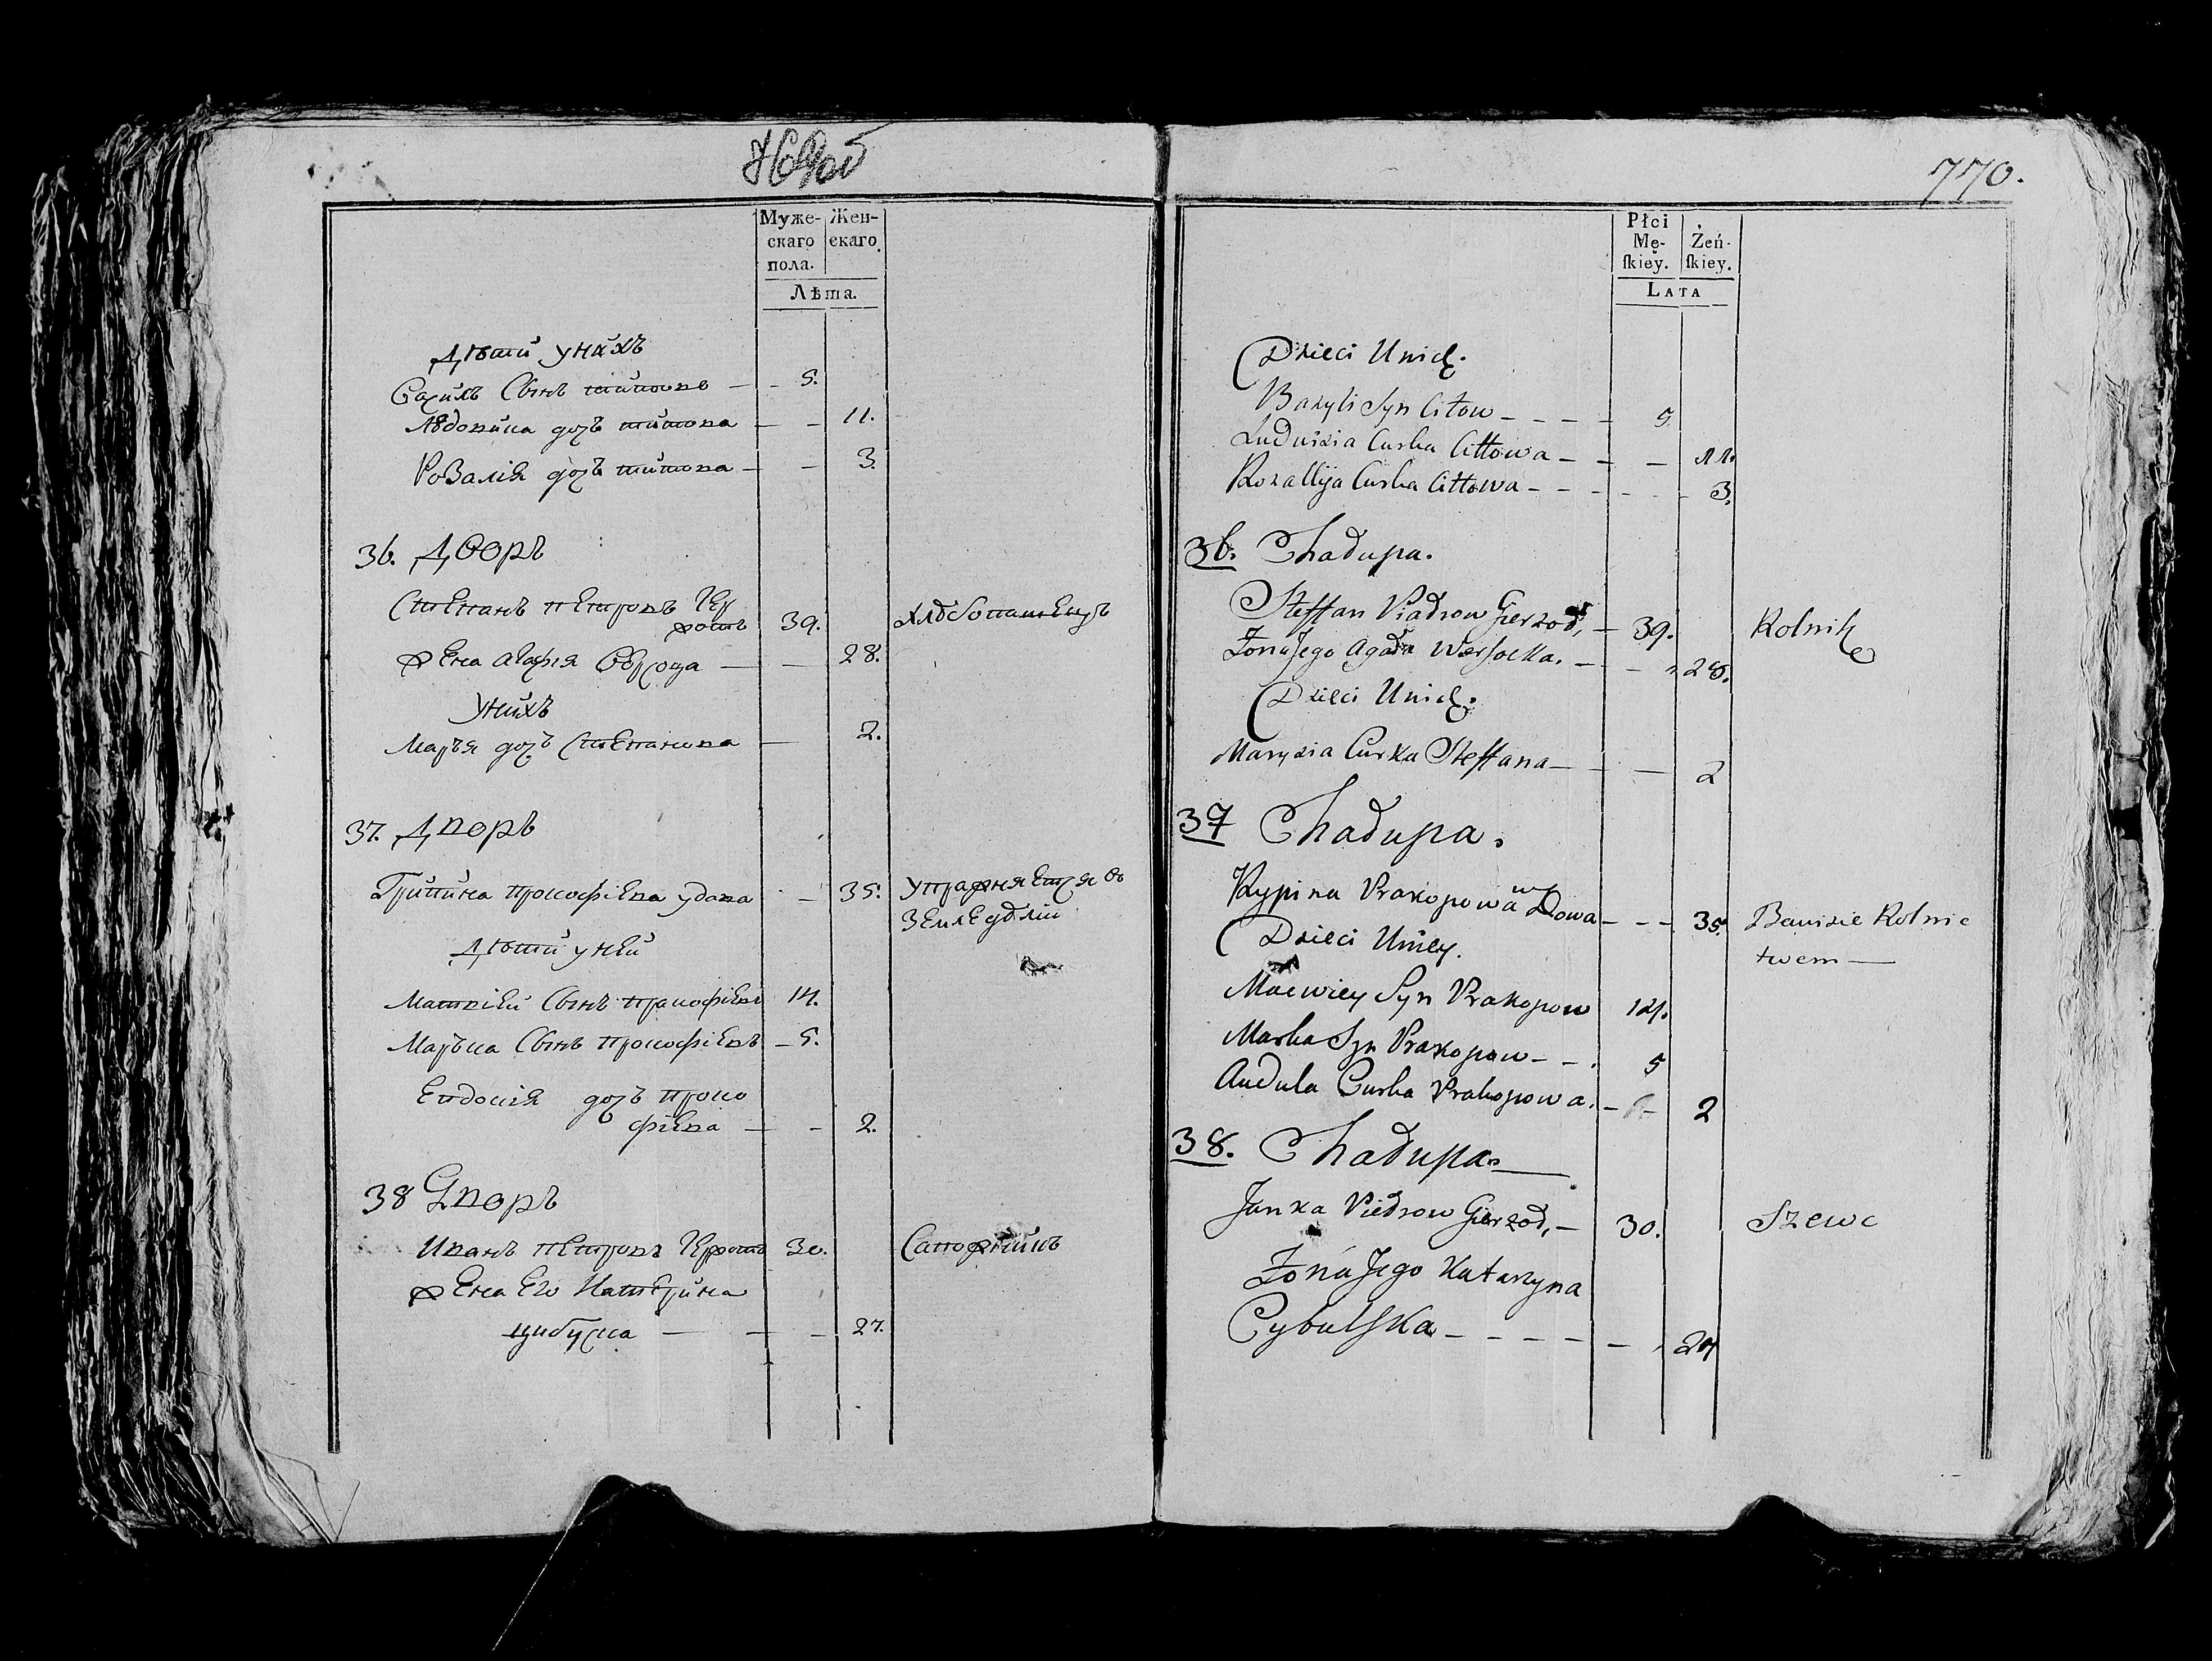 Муже-
скаго
пола.
Жен-
скаго
Лѣта.
Дѣти у нихъ
Сынъ Титовъ — 5.
Авдотиа дочъ Титова — — 11.
Розалія дочъ Титова — — 3.
36. Дворъ
Степанъ Петровъ
39. Хлѣбопашецъ
Жена Агафія — — 28.
У нихъ
Марья дочъ Степанова — 2.
37. Дворъ
Прокофіева удова — 35. Упражняется въ
Земледѣліи
Дѣти у ней
Матвіей Сынъ Прокофіевъ 14.
Марька Сынъ Прокофіевъ — 5.
Евдокія дочъ Проко
фіева — — 2.
38 Дворъ
Иванъ Петровъ 30. Сапожникъ
Жена Его Катерина
— — — 27.
770.
Płci
Mę-
skiey.
Żeń-
skiey.
Lata
Dzieci Unich.
Bazyli Syn Citow — — — — 5
Curka Cittowa — — — 11.
Rozallija Curka Cittowa — — — — 3.
36. Chadupa.
Steffan Piadrow Gierzod, — 39. Rolnik
Żona Jego Agata — — — 28.
Dzieci Unich.
Maryzia Curka Steffana — — — 2
37 Chadupa.
Prakopowa wDowa — — — 35. Bawizie Rolnic
twem —
Dzieci Uniey.
Macwiey Syn Prakopow 14.
Marka Syn Prakopow — — 5
Audula Curka Prakopowa. — 2
38. Chadupa
Janka Piedrow Gierzod, — 30. Szewc
Żona Jego Katarzyna
Cybulska — — — — — 27